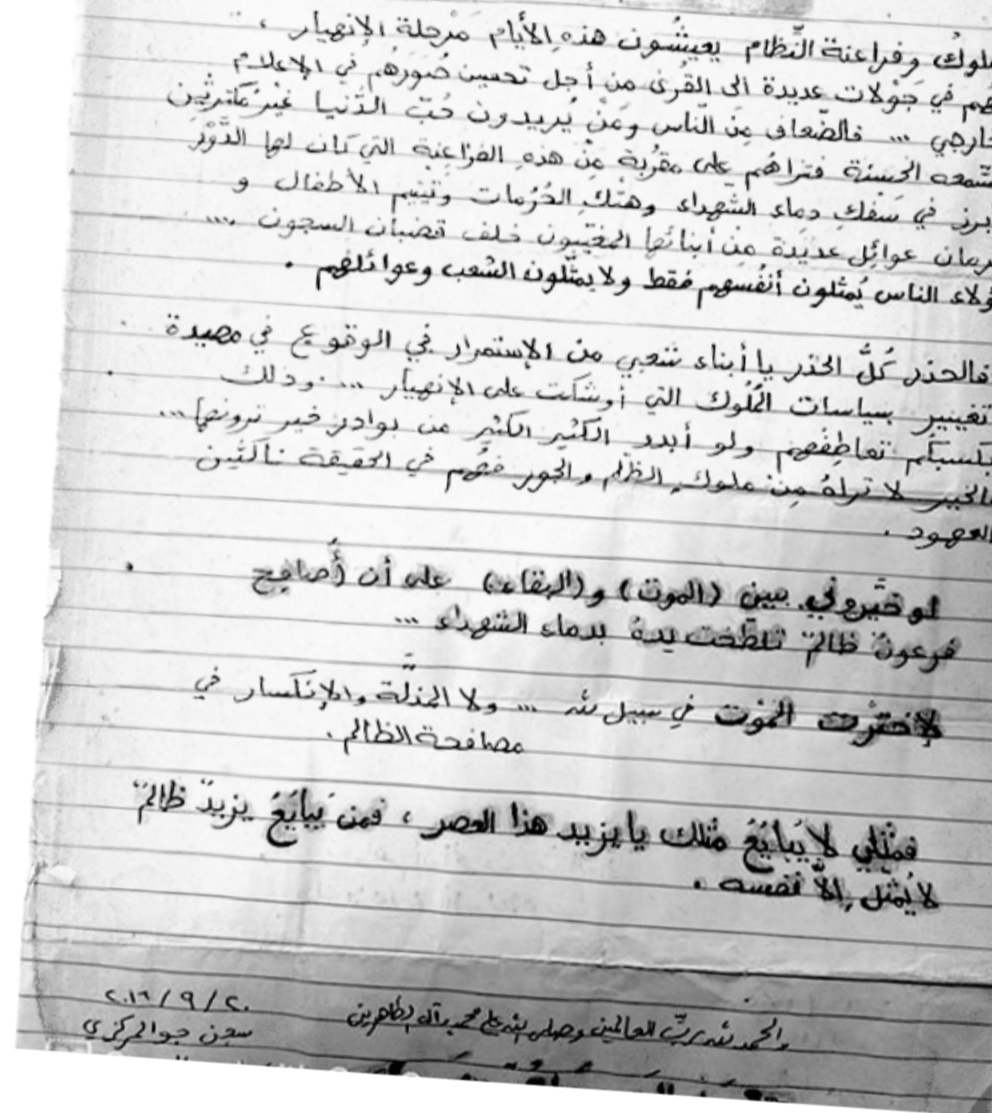 ملوك وفراعنة النّظام يعيشُون هذهِ الأيام مَرْحلة الإنهيار ،
هُم في جَوْلات عديدة الى القُرىٰ من أجل تحسين صُوَرهُم في الإعلام
خارجي ... فالضّعاف مِنَ النّاس ومَنْ يُريدون حُبّ الدّنيا غَيْر مُكترثين
سّمعه الحَسنة فتراهُم على مقرُبة مِنْ هذهِ الفراعِنة التي كان لها الدَّوْرُ
برز في سَفكِ دِماء الشهداء وهتكِ الحُرُمات وتيتيم الأطفال و
رمان عوائِل عديَدة مِنْ أبنائها المغيّبون خلف قضبان السجون ....
ؤلاء الناس يُمثلون أنفُسهم فقط ولا يمثّلون الشعب وعوائلهم .
فالحذر كُلُّ الحذر يا أبناء شعبي من الإستمرار في الوقوع في مصيدة
تغيير بسياسات المُلُوك التي أوشكت على الإنهيار ... وذلك
بكسبكُم تعاطِفهم ولو أبدو الكثير الكثير من بوادر خير ترونها ...
الخير لا تراهُ مِنْ ملوكِ الظّلم والجور فهُم في الحقيقة ناكثين
العهود .
لو خيّروني بين (الموت) و(البقاء) على أن أُصافح
فرعونٌ ظالمٌ تلطّخت يدهُ بدماء الشهداء ...
لإخترْت الموْت في سبيل الله ... ولا المذلَّة والإنكسار في
مصافحة الظالم .
فمثْلي لا يُبايَعُ مثلك يا يزيد هذا العصر ، فمن يُبايَعُ يزيدٌ ظالمٌ
لا يُمثل إلاّ نفسه .
والحمد لله ربّ العالمين وصلى الله على محمد وآله الطاهرين
٢٠١٦/٩/٢٠
سجن جو المركزي